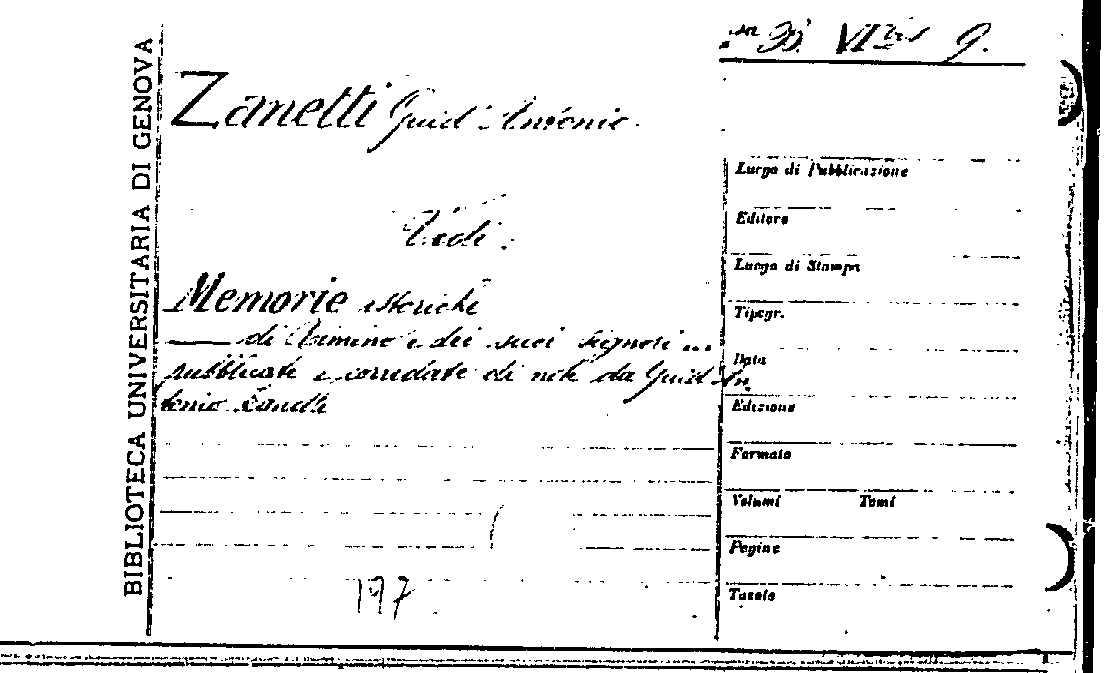 BIBLIOTECA UNIVERSITARIA DI GENOVA
VI bis 9.
Zanetti Guid'Antonio
Vedi:
Memorie storiche
di Rimino e dei suoi signori ...
pubblicate e corredate di note da Guid'An
tonio Zanetti
197
Luogo di Pubblicazione
Editore
Luogo di Stampa
Tipogr.
Data
Edizione
Formato
Volumi Tomi
Pagine
Tavole